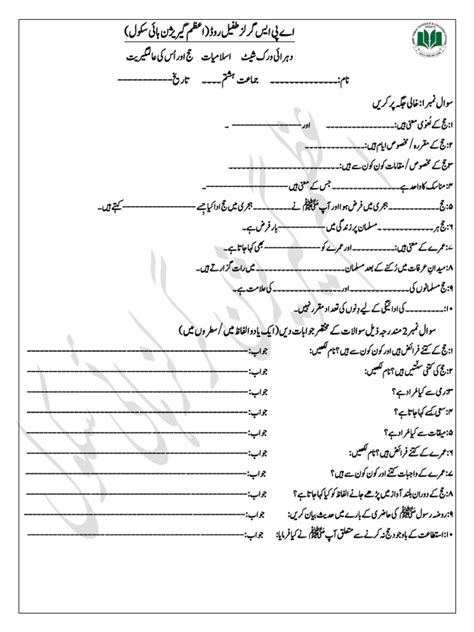 اے پی ایس گرلز طفیل روڈ (اعظم گیریژن ہائی سکول)
دہرائی ورک شیٹ اسلامیات حج اور اُس کی عالمگیریت
نام:--------------- جماعت ہشتم ---------------- تاریخ------------
سوال نمبر ا: خالی جگہ پر کریں
۱: حج کے لغوی معنی ہیں: ------------ اور ------------ ۔
۲: حج کے مقررہ/مخصوص ایام ہیں: ------------
۳: حج کے مخصوص/مقامات کون کون سے ہیں: ------------
۴: مناسک کا واحد ہے ------------ جس کے معنی ہیں: ------------
۵: حج ------------ ہجری میں فرض ہوا اور آپ ﷺ نے ------------ ہجری میں حج ادا کیا جسے ------------ کہتے ہیں۔
۶: حج ------------ مسلمان پر زندگی میں ------------ بار فرض ہے۔
۷: عمرے کے معنی ہیں: ------------ اور عمرے کو ------------ بھی کہا جاتا ہے۔
۸: میدانِ عرفات میں رُکنے کے بعد مسلمان ------------ میں رات گزارتے ہیں۔
۹: حج مسلمانوں کی ------------ اور ------------ کی علامت ہے۔
۱۰: ------------ کی ادائیگی کے لیے دِنوں کی تعداد مقرر نہیں۔
سوال نمبر 2 مندرجہ ذیل سوالات کے مختصر جوابات دیں (ایک یا دو الفاظ میں / سطروں میں)
۱: حج کے کتنے فرائض ہیں اور کون کون سے ہیں؟ نام لکھیں: جواب: ------------
۲: حج کی کتنی سنتیں ہیں؟ نام لکھیں: جواب: ------------
۳: رمی سے کیا مُراد ہے؟ جواب: ------------
۴: سعی کسے کہا جاتا ہے؟ جواب: ------------
۵: میقات سے کیا مُراد ہے؟ جواب: ------------
۶: عمرے کے کتنے فرائض ہیں؟ نام لکھیں: جواب: ------------
۷: عمرے کے واجبات کتنے اور کون کون سے ہیں؟ جواب: ------------
۸: حج کے دوران بلند آواز میں پڑھے جانے الفاظ کو کیا کہا جاتا ہے؟ جواب: ------------
۹: روضہ رسول ﷺ کی حاضری کے بارے میں حدیث بیان کریں؟ جواب: ------------
۱۰: استطاعت کے باوجود حج نہ کرنے سے متعلق آپ ﷺ نے کیا فرمایا: جواب: ------------